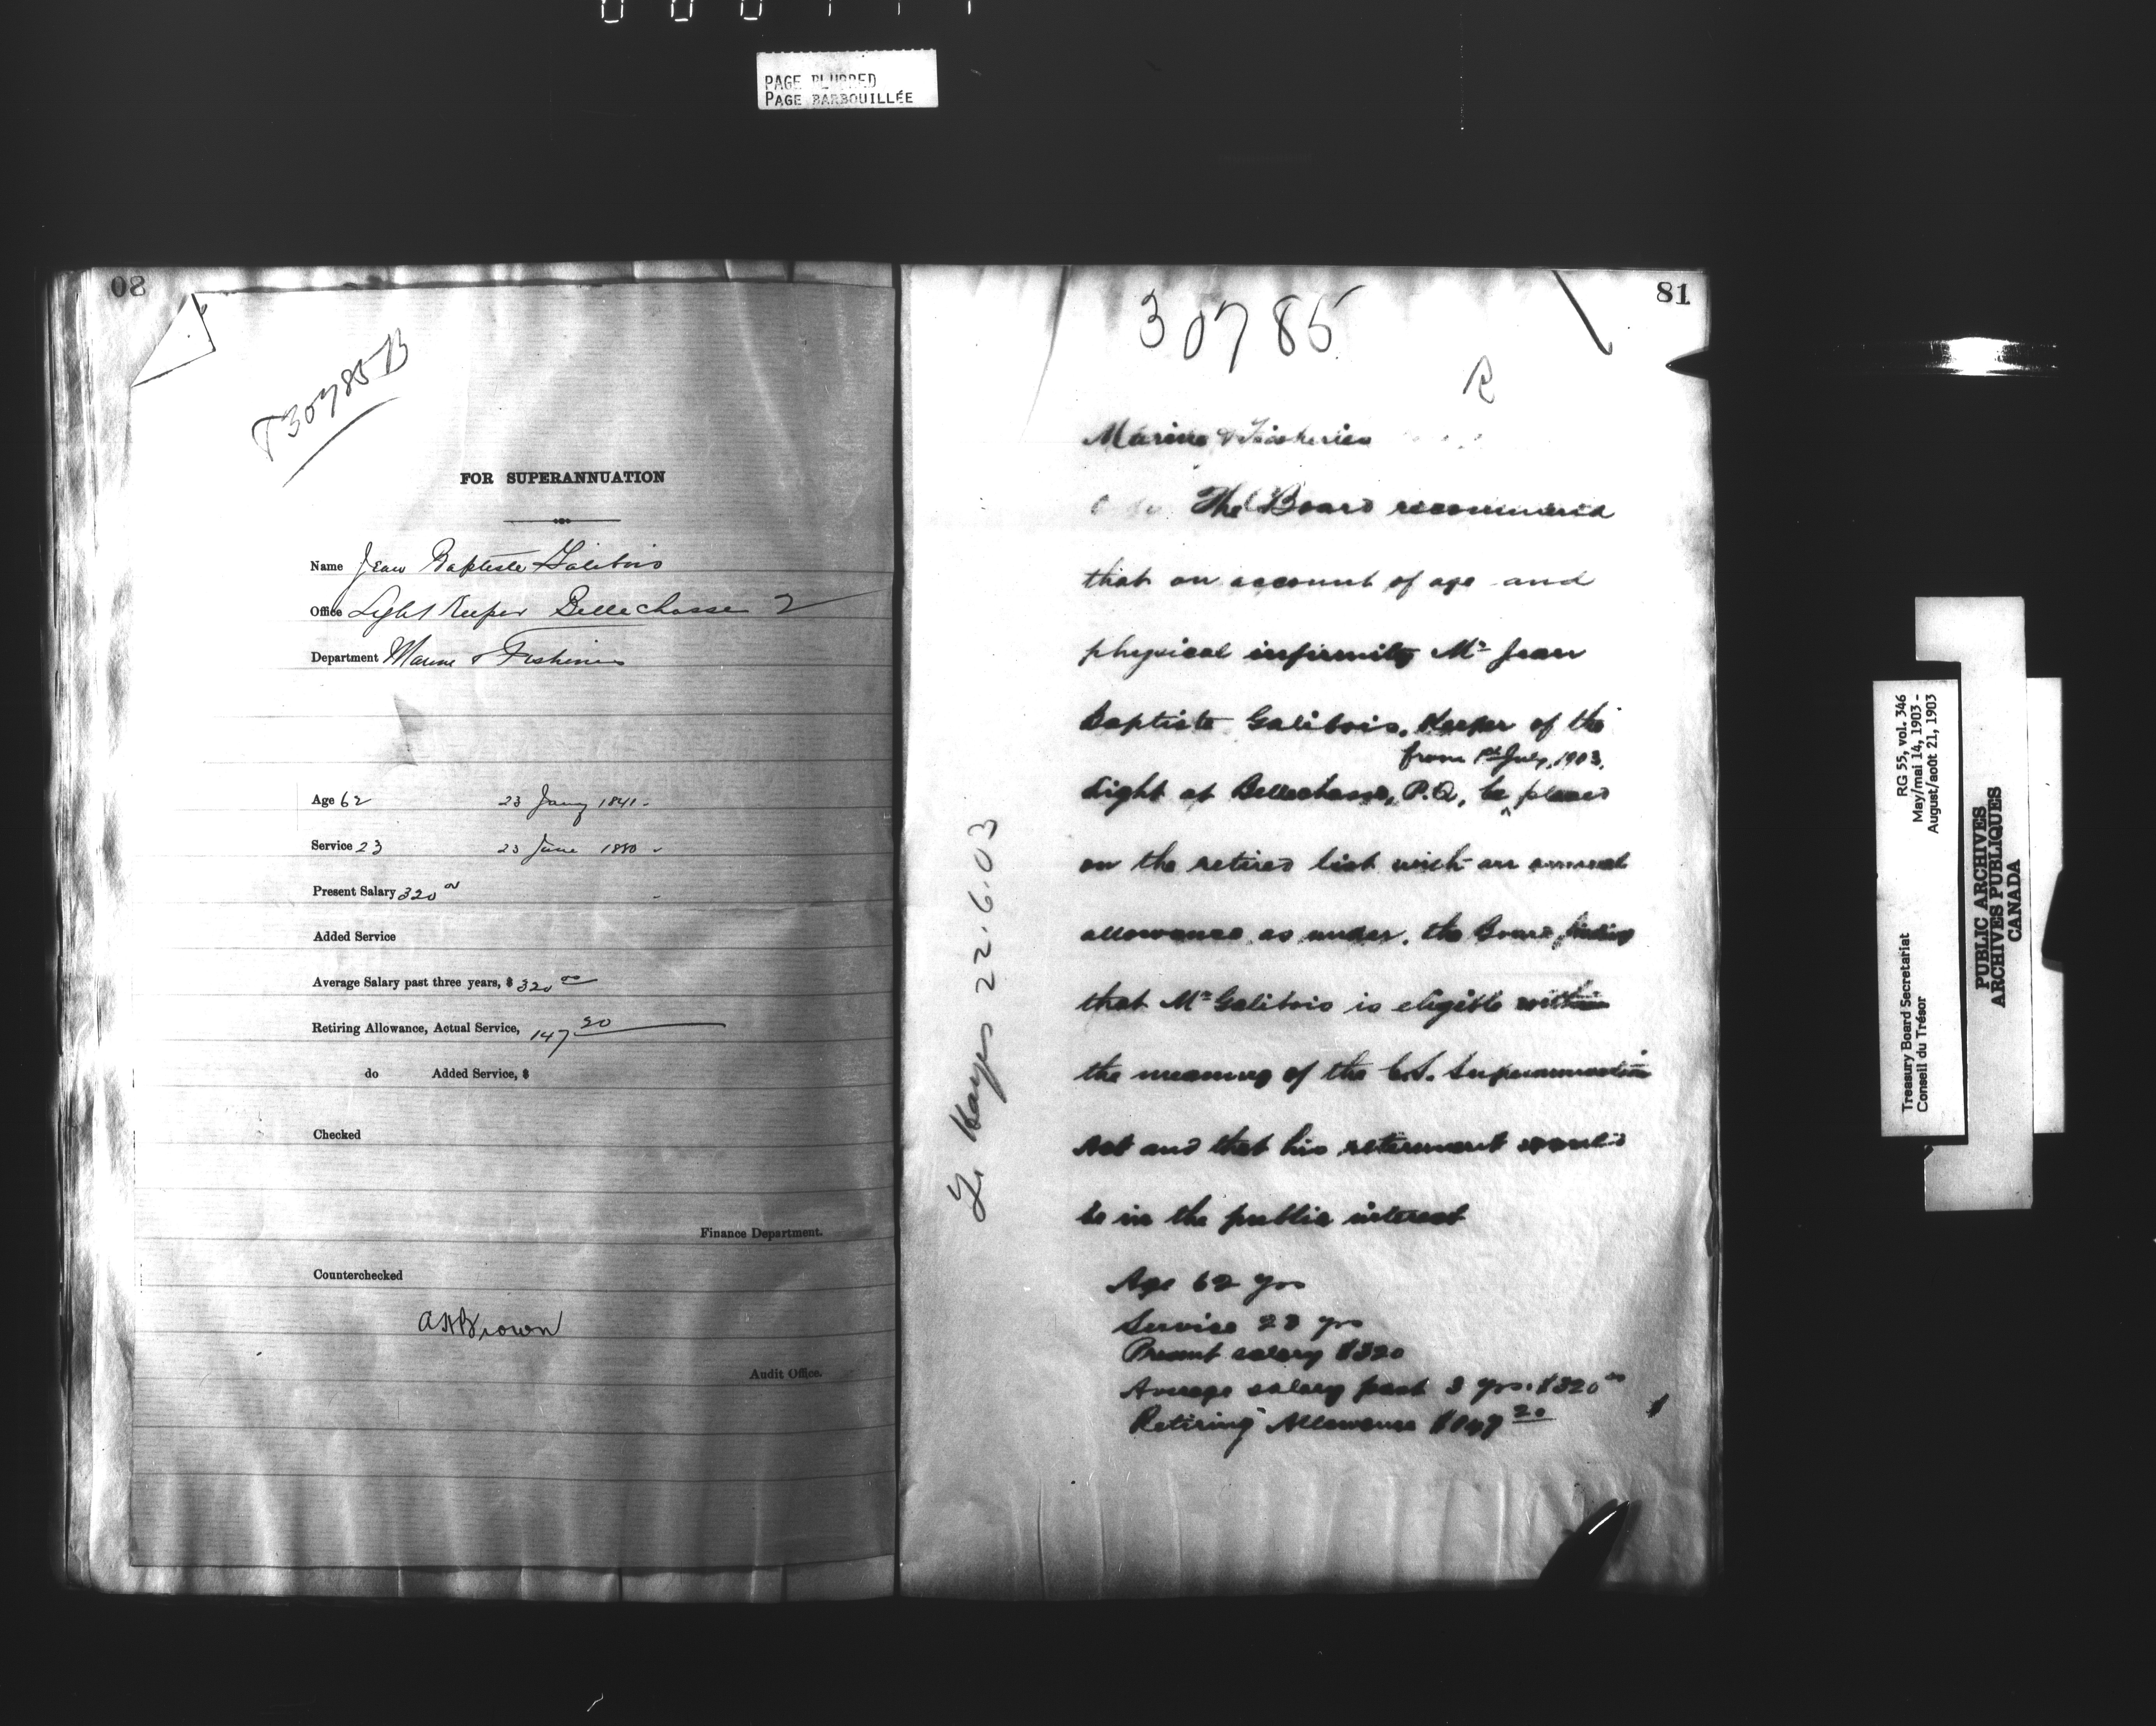 PAGE BLURRED
PAGE BARBOUILLÉE
80
T30785B
FOR SUPERANNUATION
Name Jean Baptiste Galibois
Office Light Keeper Bellechasse
Department Marine & Fisheries
Age 62 23 Jany 1841
Service 23 23 June 1880
Present Salary 320 00
Added Service
Average Salary past three years, $ 320 00
Retiring Allowance, Actual Service, 147 20
do Added Service, $
Checked
Finance Department.
Counterchecked
A H Brown
Audit Office.
81
30785
R
Marine & Fisheries
The Board recommend
that on account of age and
physical infirmity Mr Jean
Baptiste Galibois, Keeper of the
from 1st July, 1903,
Light at Bellechasse, P.Q., be placed
on the retired list with an annual
allowance as under, the Board finding
that Mr Galibois is eligible within
the meaning of the C.S. Superannuation
Act and that his retirement would
be in the public interest
Age 62 yrs
Service 23 yrs
Present salary $320
Average salary past 3 yrs. $320 00
Retiring Allowance $147 20
22.6.03
RG 55, vol. 346
May/mai 14, 1903 -
August/août 21, 1903
Treasury Board Secretariat
Conseil du Trésor
PUBLIC ARCHIVES
ARCHIVES PUBLIQUES
CANADA